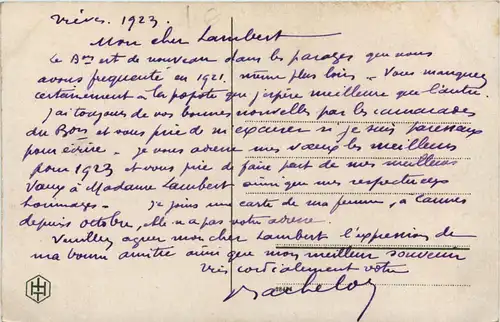 Trèves. 1923.
Mon cher Lambert
Le Bon est de nouveau dans les parages que nous
avons frequenté en 1921. même plus loin. Vous manquez
certainement à la popote que j'espère meilleure que l'autre.
J'ai toujours de vos bonnes nouvelles par les camarades
du Bon et vous prie de m'excuser si je suis paresseux
pour écrire. je vous adresse mes vœux les meilleurs
pour 1923 et vous prie de faire part de mes meilleurs
Vœux à Madame Lambert ainsi que mes respectueux
hommages. Je joins une carte de ma femme, à Cannes
depuis octobre, elle n'a pas votre adresse.
Veuillez agréer mon cher Lambert l'expression de
ma bonne amitié ainsi que mon meilleur souvenir
Très cordialement votre
Bachelos